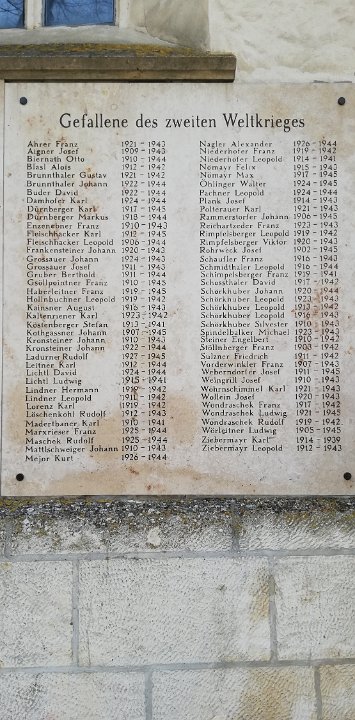 Gefallene des zweiten Weltkrieges
Ahrer Franz 1921 - 1943
Aigner Josef 1909 - 1943
Biernath Otto 1910 - 1944
Blasl Alois 1912 - 1942
Brunnthaler Gustav 1921 - 1942
Brunnthaler Johann 1922 - 1944
Buder David 1922 - 1944
Damhofer Karl 1924 - 1944
Dürnberger Karl 1917 - 1945
Dürnberger Markus 1918 - 1944
Enzenebner Franz 1910 - 1943
Fleischhacker Karl 1912 - 1945
Fleischhacker Leopold 1906 - 1944
Frankensteiner Johann 1920 - 1943
Grossauer Johann 1924 - 1943
Grossauer Josef 1911 - 1943
Gruber Berthold 1911 - 1944
Gsöllpointner Franz 1910 - 1945
Haberfellner Franz 1919 - 1945
Hollnbuchner Leopold 1919 - 1942
Kainsner August 1918 - 1943
Kaltenriener Karl 1923 - 1942
Köstenberger Stefan 1913 - 1941
Kothgassner Johann 1907 - 1945
Kronsteiner Johann 1910 - 1943
Kronsteiner Johann 1922 - 1944
Ladurner Rudolf 1927 - 1945
Leitner Karl 1912 - 1944
Lichtl David 1924 - 1944
Lichtl Ludwig 1915 - 1941
Lindner Hermann 1919 - 1942
Lindner Leopold 1911 - 1942
Lorenz Karl 1909 - 1942
Löschenkohl Rudolf 1912 - 1943
Maderthaner Karl 1910 - 1941
Marxrieser Franz 1925 - 1944
Maschek Rudolf 1925 - 1944
Mattlschweiger Johann 1910 - 1943
Mejor Kurt 1926 - 1944
Nagler Alexander 1926 - 1944
Niederhofer Franz 1919 - 1942
Niederhofer Leopold 1914 - 1941
Nömayr Felix 1915 - 1943
Nömayr Max 1917 - 1945
Öhlinger Walter 1924 - 1945
Pachner Leopold 1924 - 1944
Plank Josef 1914 - 1943
Polterauer Karl 1921 - 1943
Rammerstorfer Johann 1906 - 1945
Reichartseder Franz 1923 - 1943
Rimpfelsberger Leopold 1919 - 1942
Rimpfelsberger Viktor 1920 - 1943
Rohrweck Josef 1902 - 1945
Schaufler Franz 1916 - 1943
Schmidthaler Leopold 1916 - 1944
Schimpfelsberger Franz 1919 - 1941
Schosthaler David 1917 - 1942
Schörkhuber Johann 1920 - 1944
Schörkhuber Leopold 1923 - 1943
Schörkhuber Leopold 1913 - 1942
Schörkhuber Leopold 1916 - 1944
Schörkhuber Silvester 1910 - 1943
Spindelbalker Michael 1923 - 1943
Steiner Engelbert 1910 - 1942
Stöllnberger Franz 1903 - 1942
Sulzner Friedrich 1911 - 1942
Vorderwinkler Franz 1907 - 1943
Weberndorfer Josef 1911 - 1945
Weingrill Josef 1910 - 1943
Wöhrnschimmel Karl 1921 - 1943
Wollein Josef 1920 - 1943
Wondraschek Franz 1917 - 1942
Wondraschek Ludwig 1921 - 1945
Wondraschek Rudolf 1919 - 1942
Wörlgitner Ludwig 1905 - 1945
Ziebermayr Karl 1914 - 1939
Ziebermayr Leopold 1912 - 1943